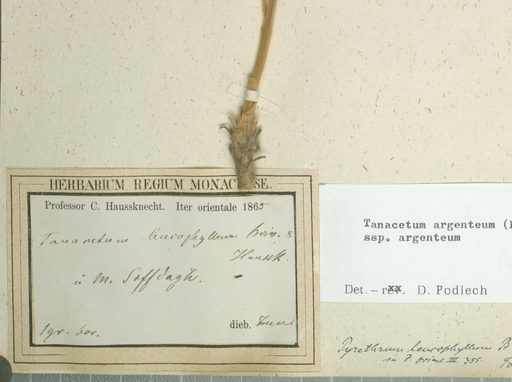 HERBARIUM REGIUM MONACENSE.
Professor C. Haussknecht. Iter orientale 1865
Tanacetum leucophyllum Boiss. &
Hausskn.
in m. Soffdagh. -
dieb. Juni
Tanacetum argenteum (
ssp. argenteum
Det. – rev. D. Podlech
Pyrethrum leucophyllum B
in